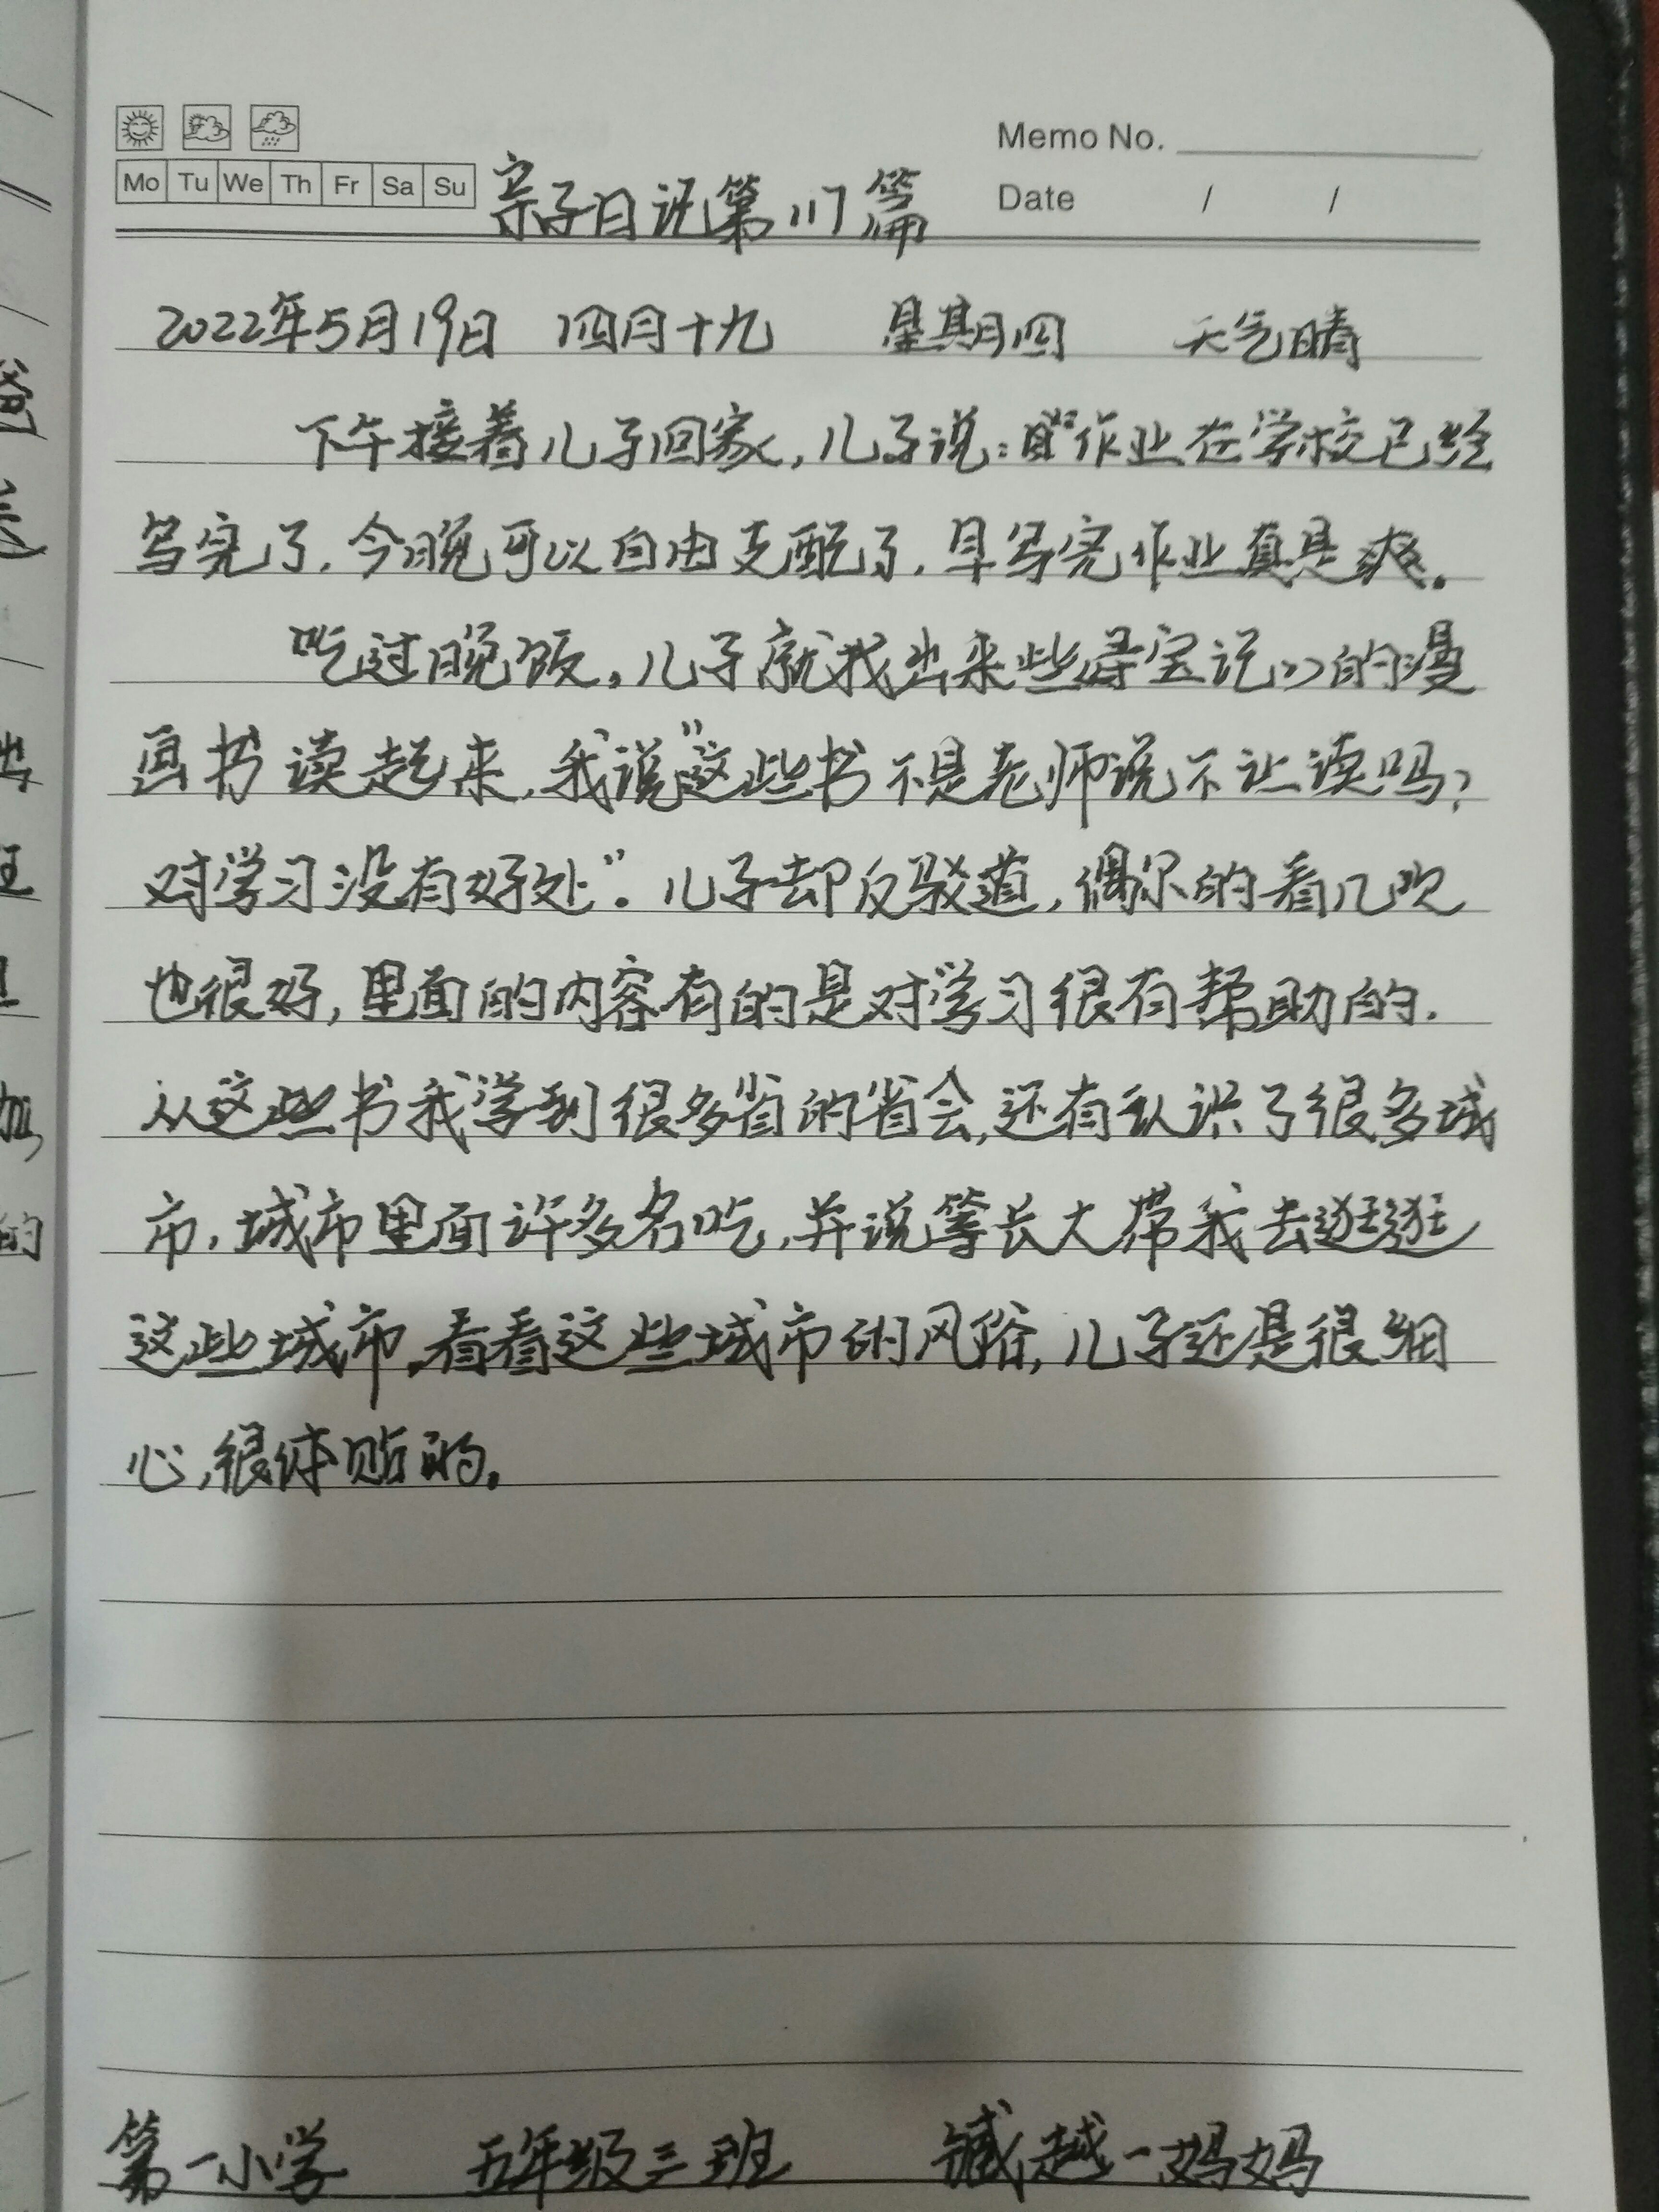 Memo No.
Mo Tu We Th Fr Sa Su
Date / /
亲子日记第117篇
2022年5月19日 四月十九 星期四 天气晴
下午接着儿子回家,儿子说:"作业在学校已经
写完了.今晚可以自由支配了.早写完作业真是爽.
吃过晚饭,儿子就找出来些寻宝记》的漫
画书读起来,我说"这些书不是老师说不让读吗?
对学习没有好处".儿子却反驳道,偶尔的看几次
也很好,里面的内容有的是对学习很有帮助的.
从这些书我学到很多省的省会,还有认识了很多城
市,城市里面许多名吃,并说等长大带我去逛逛
这些城市,看看这些城市的风俗,儿子还是很细
心,很体贴的.
第一小学 五年级三班 越一妈妈